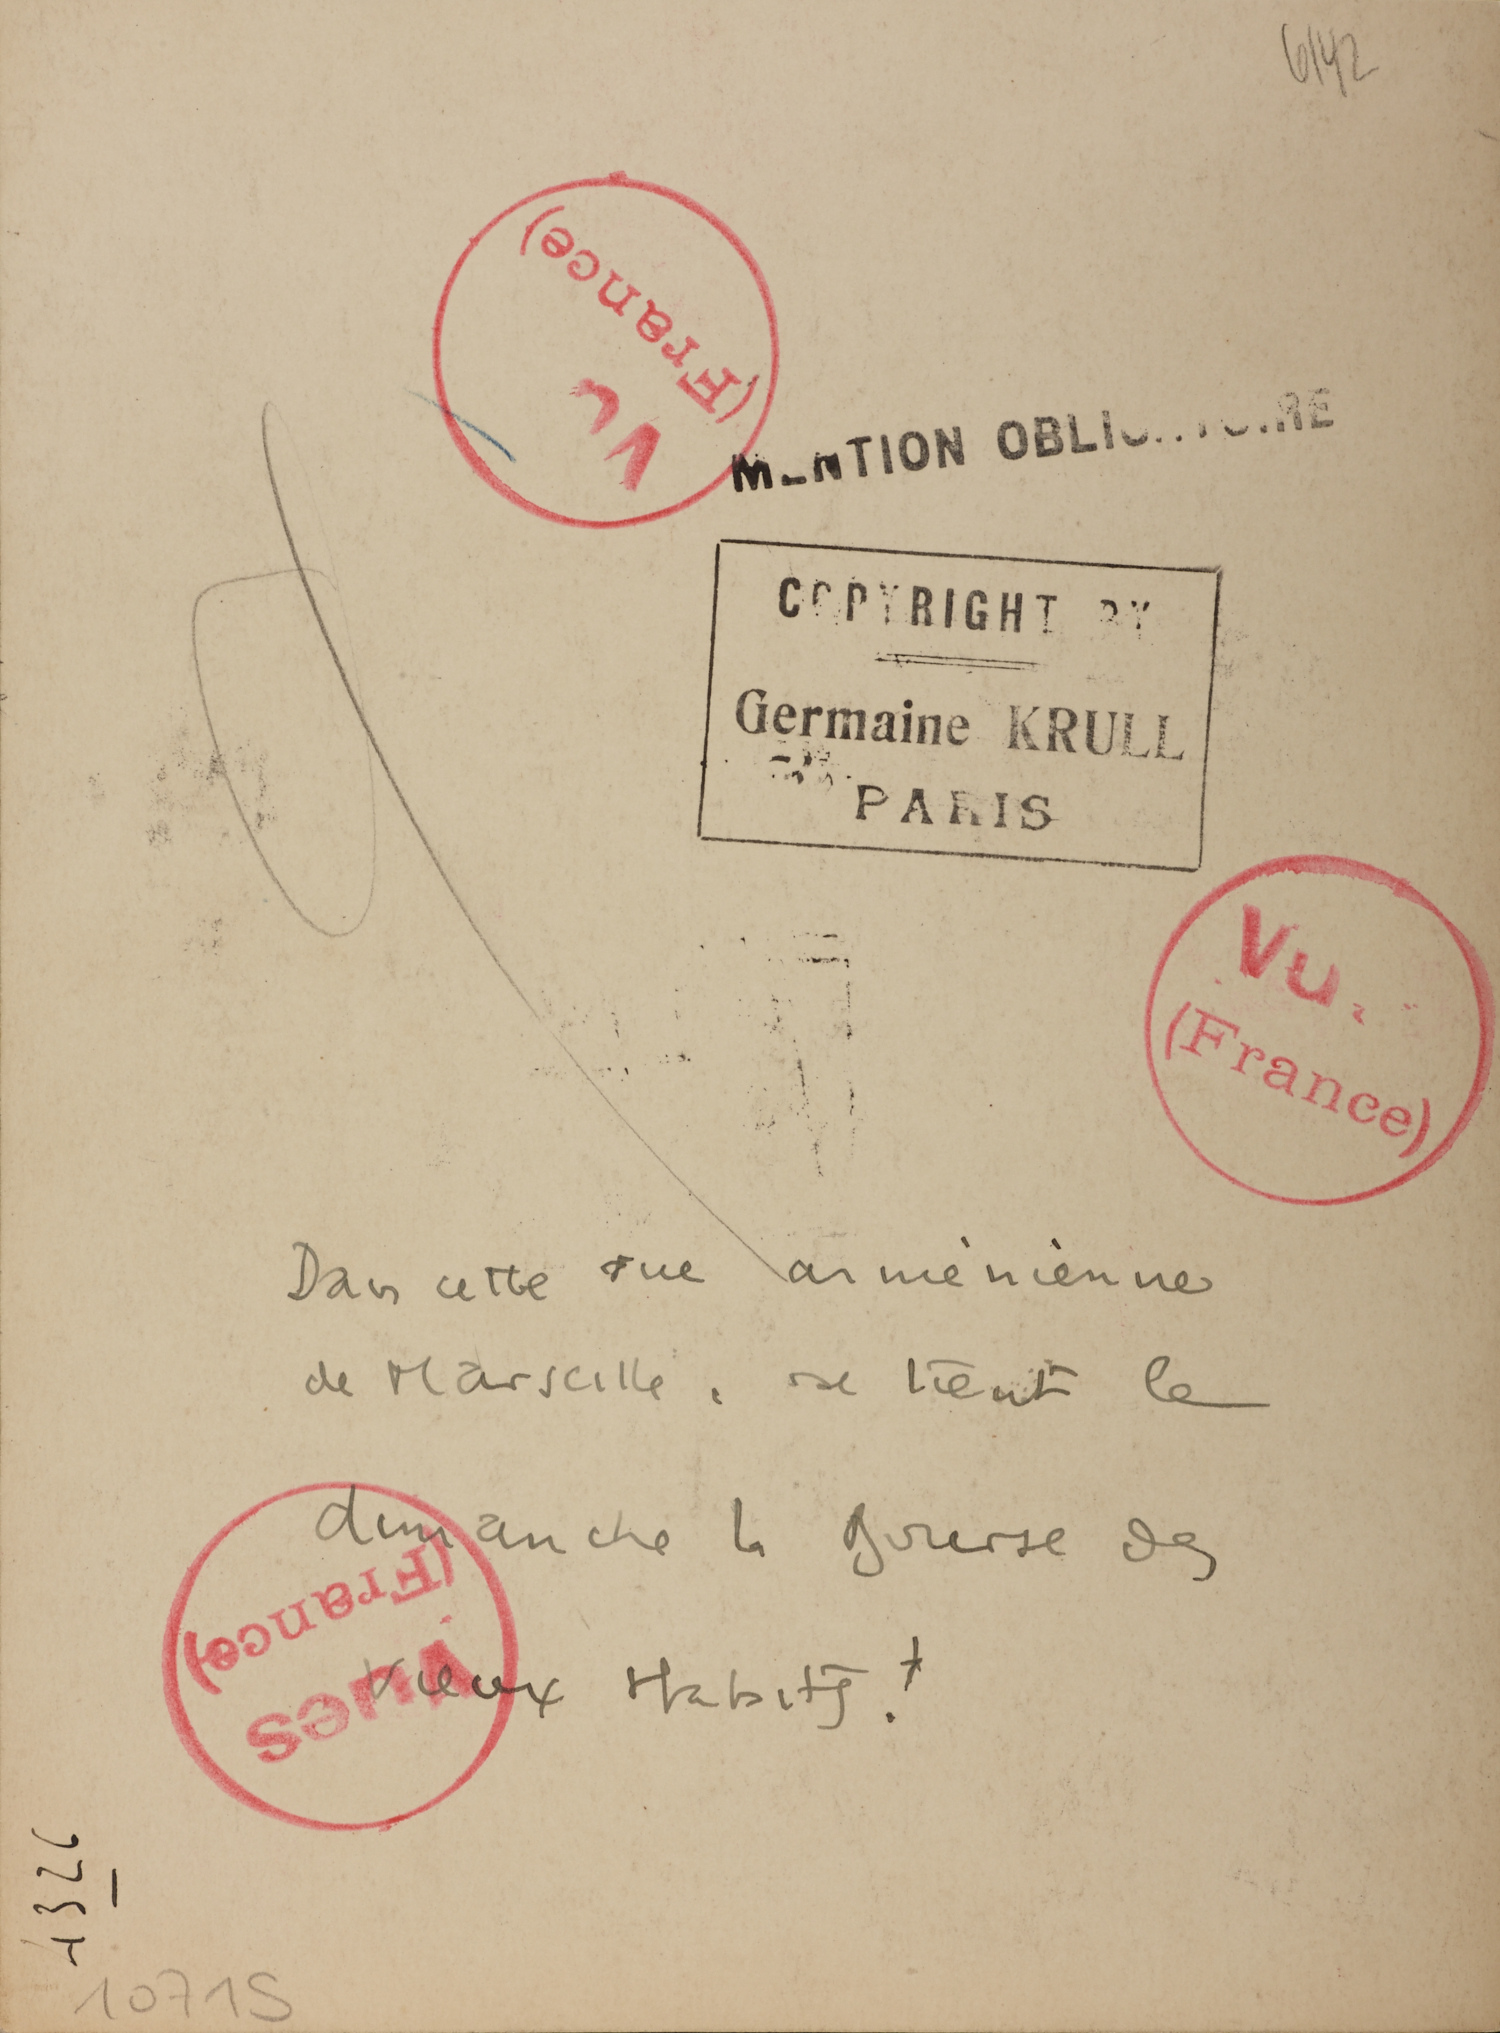 6142
Vu
(France)
MENTION OBLIGATOIRE
COPYRIGHT BY
Germaine KRULL
PARIS
Vu
(France)
Dans cette rue arménienne
de Marseille, se tient le
dimanche la Bourse des
Vieux Habits.
Vues
(France)
1326
10715